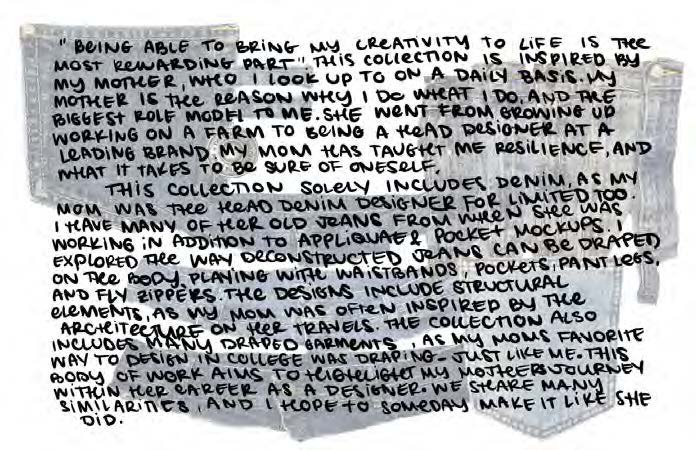 "BEING ABLE TO BRING MY CREATIVITY TO LIFE IS THE
MOST REWARDING PART". THIS COLLECTION IS INSPIRED BY
MY MOTHER, WHO I LOOK UP TO ON A DAILY BASIS. MY
MOTHER IS THE REASON WHY I DO WHAT I DO, AND THE
BIGGEST ROLE MODEL TO ME. SHE WENT FROM GROWING UP
WORKING ON A FARM TO BEING A HEAD DESIGNER AT A
LEADING BRAND. MY MOM HAS TAUGHT ME RESILIENCE, AND
WHAT IT TAKES TO BE SURE OF ONESELF.
THIS COLLECTION SOLELY INCLUDES DENIM, AS MY
MOM WAS THE HEAD DENIM DESIGNER FOR LIMITED TOO.
I HAVE MANY OF HER OLD JEANS FROM WHEN SHE WAS
WORKING IN ADDITION TO APPLIQUAE & POCKET MOCKUPS. I
EXPLORED THE WAY DECONSTRUCTED JEANS CAN BE DRAPED
ON THE BODY, PLAYING WITH WAISTBANDS, POCKETS, PANT LEGS,
AND FLY ZIPPERS. THE DESIGNS INCLUDE STRUCTURAL
ELEMENTS, AS MY MOM WAS OFTEN INSPIRED BY THE
ARCHITECTURE ON HER TRAVELS. THE COLLECTION ALSO
INCLUDES MANY DRAPED GARMENTS, AS MY MOMS FAVORITE
WAY TO DESIGN IN COLLEGE WAS DRAPING - JUST LIKE ME. THIS
BODY OF WORK AIMS TO HIGHLIGHT MY MOTHERS JOURNEY
WITHIN HER CAREER AS A DESIGNER. WE SHARE MANY
SIMILARITIES, AND I HOPE TO SOMEDAY MAKE IT LIKE SHE
DID.